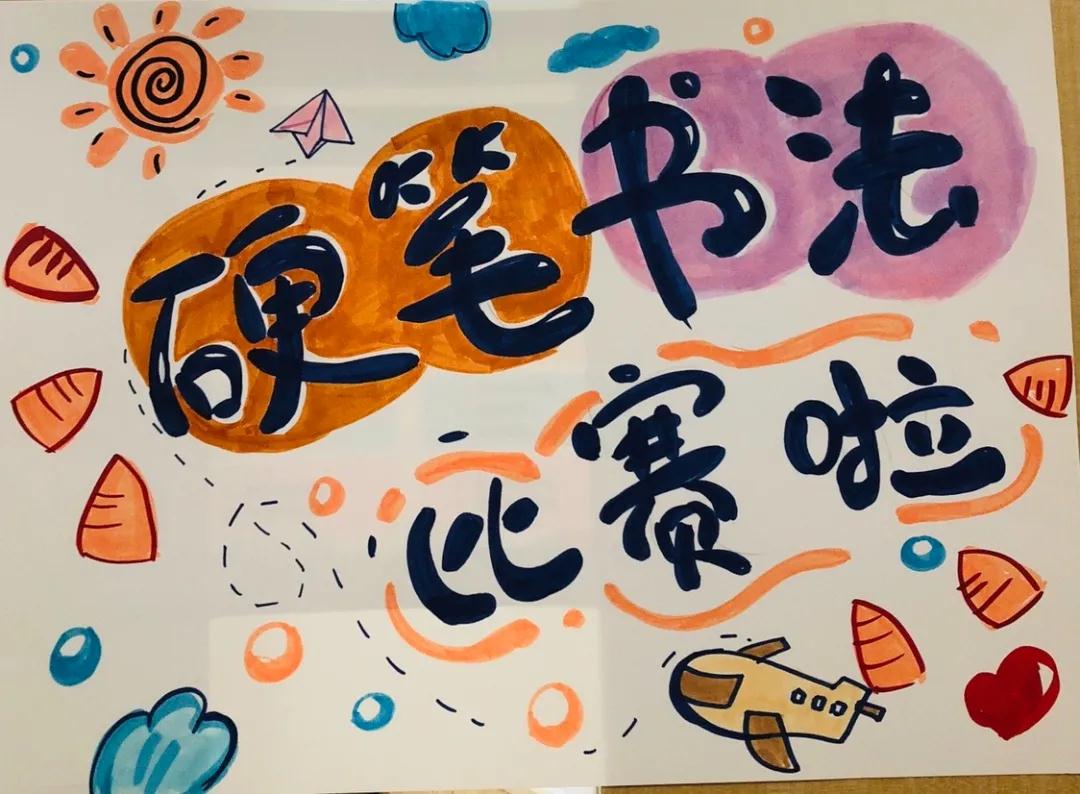 硬笔书法
比赛啦